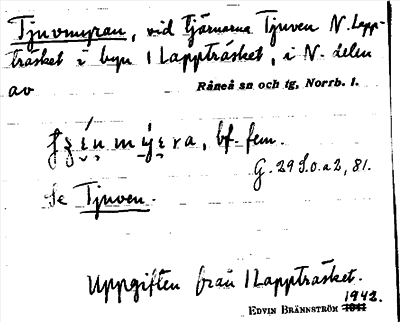 Tjuvmyran, vid tjärnarna Tjuven N. Lapp-
träsket i byn 1 Lappträsket, i N. delen
av Råneå sn och tg, Norrb. l.
bf. fem.
G. 29 S.o.a 2, 81.
Se Tjuven.
Uppgiften från 1 Lappträsket.
1942.
EDVIN BRÄNNSTRÖM 1941